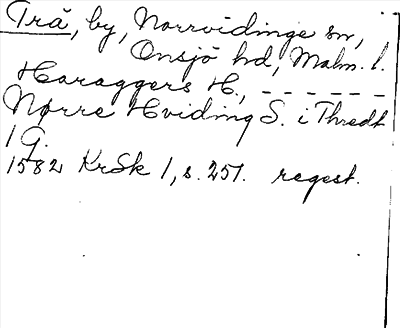 Trä, by, Norrvidinge sn,
Onsjö hd, Malm. l.
Haraggers H., – – – – – –
Nørre Hviding S. i Thredt
1 G.
1582 KrSk 1, s. 257. regest.